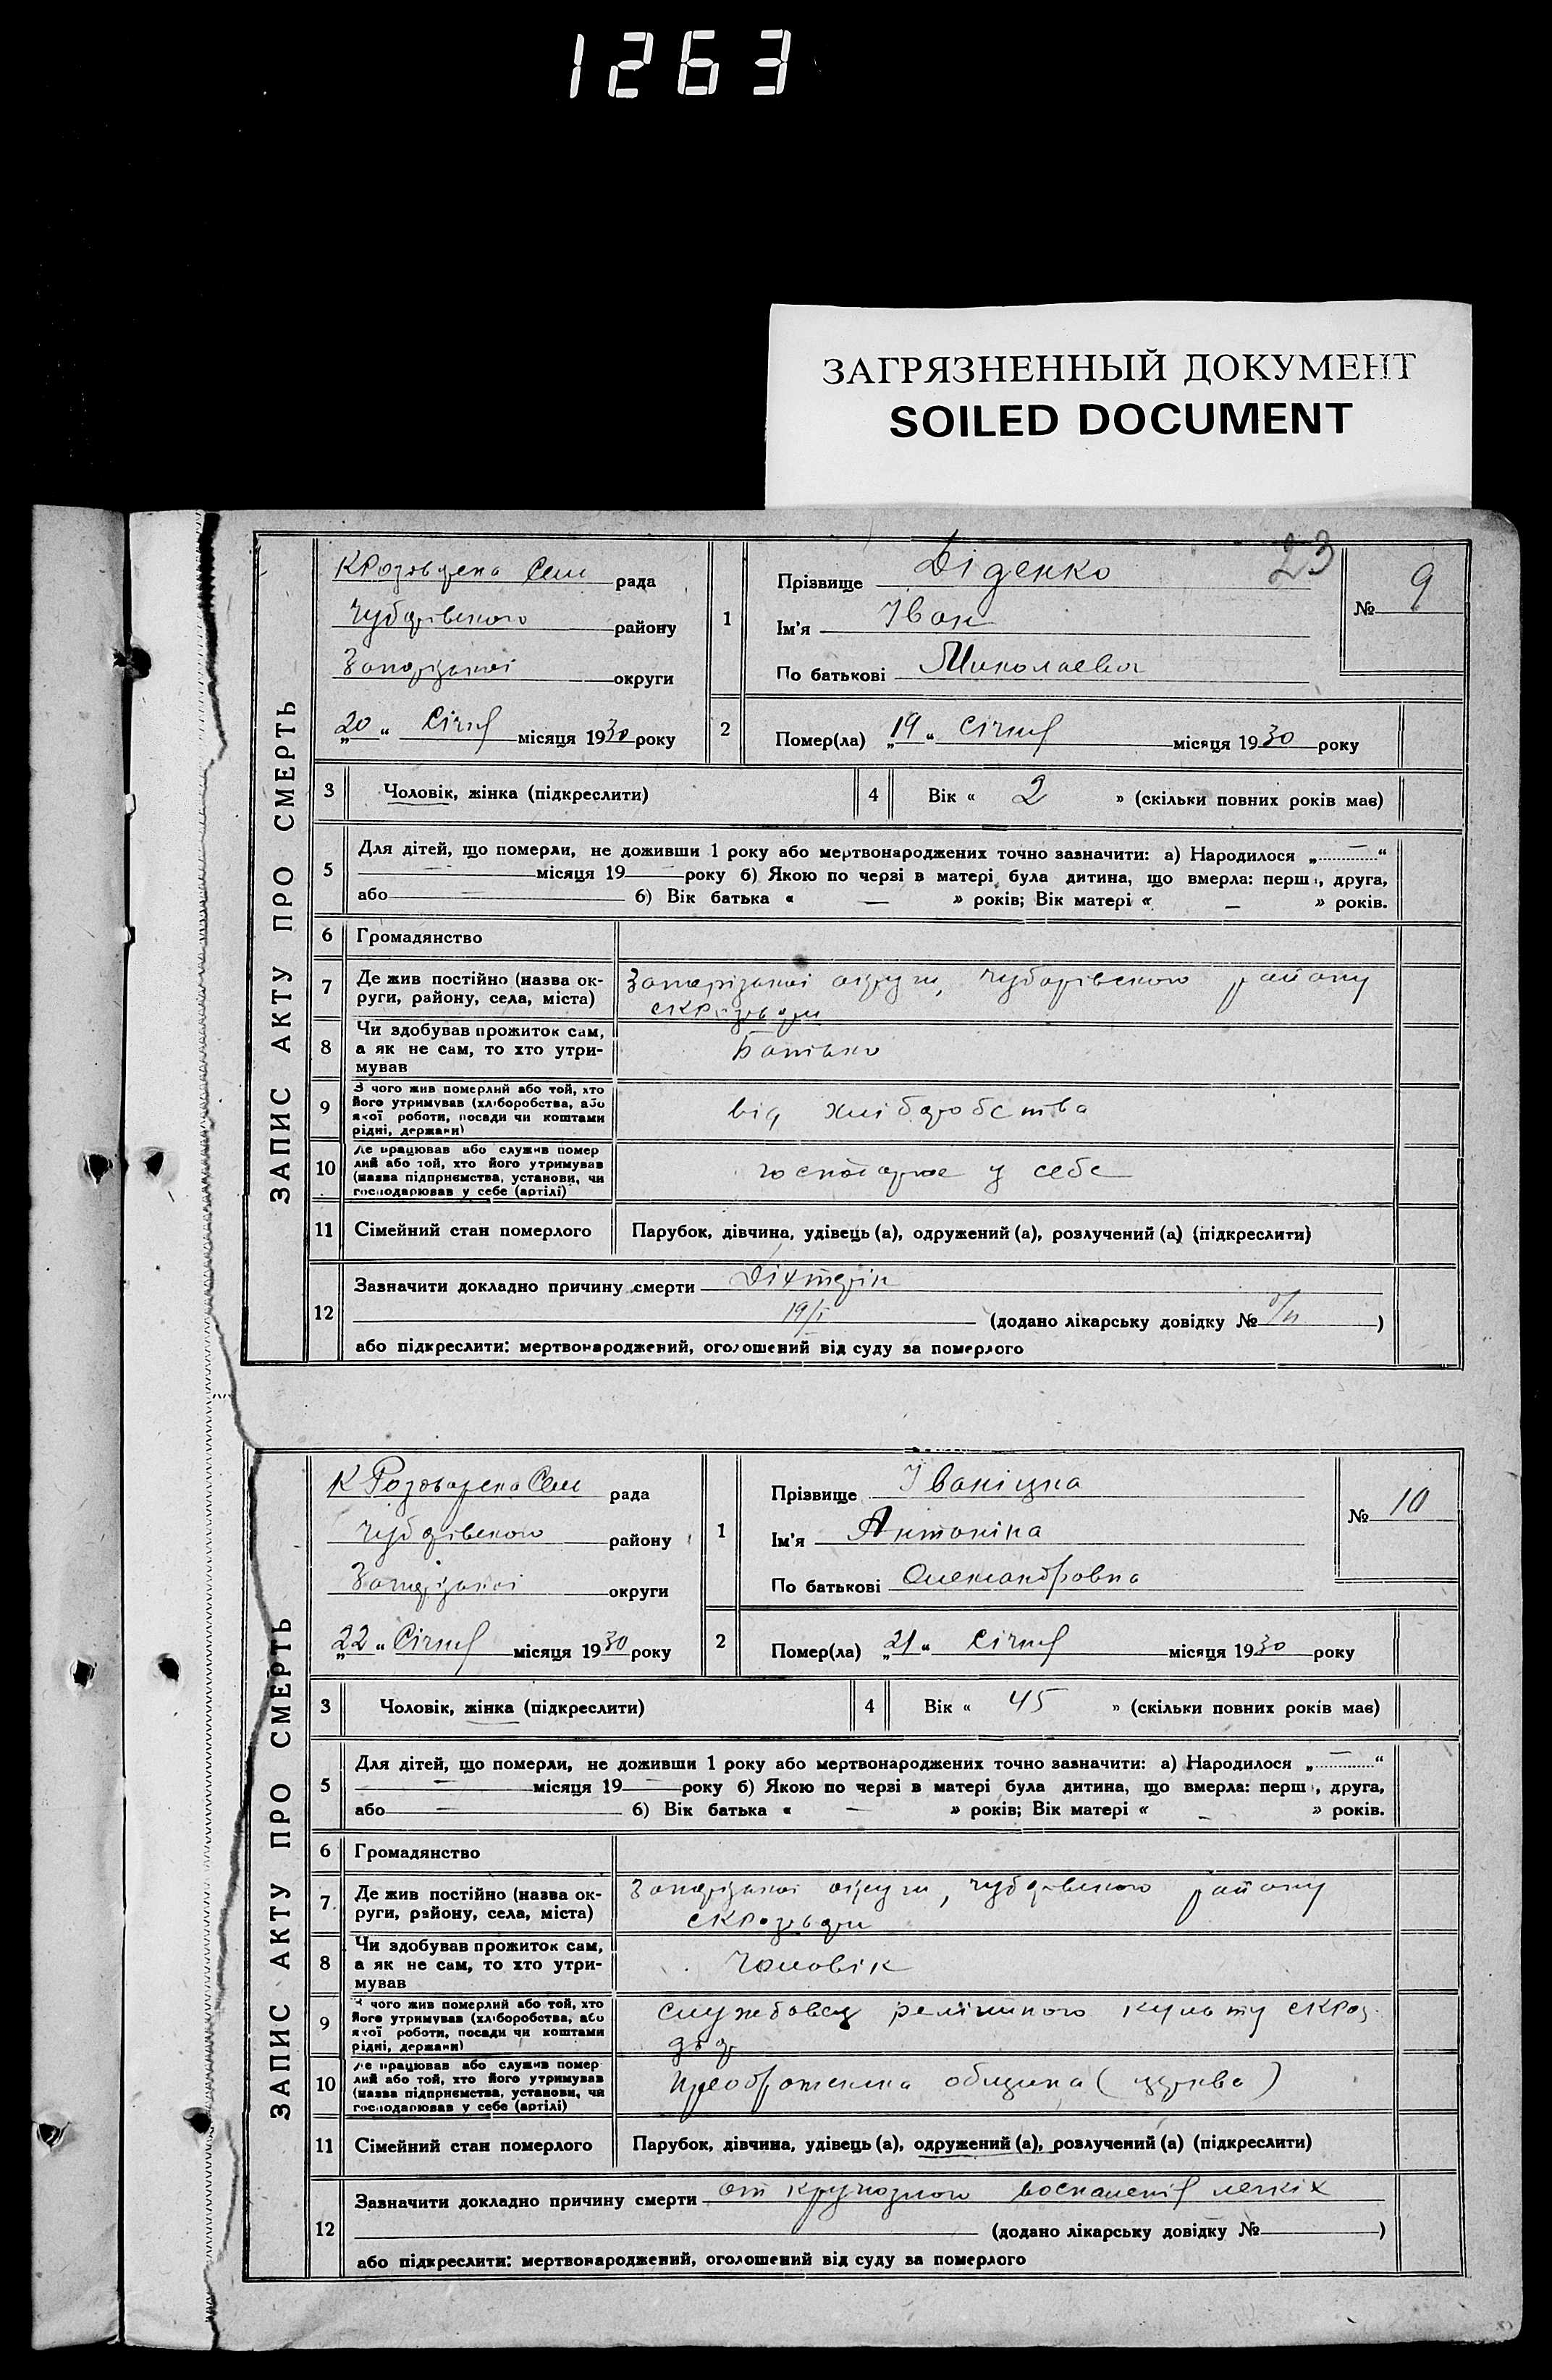 1263
ЗАГРЯЗНЕННЫЙ ДОКУМЕНТ
SOILED DOCUMENT
23
ЗАПИС АКТУ ПРО СМЕРТЬ
рада
Чубарівського району
Запорізької округи
„20“ Січня місяця 1930 року
1
Прізвище Діденко
Ім'я Іван
По батькові Миколаевич
№ 9
2
Помер(ла) „19“ Січня місяця 1930 року
3 Чоловік, жінка (підкреслити)
4 Вік « 2 » (скільки повних років має)
5 Для дітей, що померли, не доживши 1 року або мертвонароджених точно зазначити: а) Народилося „ — “
— місяця 19 — року б) Якою по черзі в матері була дитина, що вмерла: перша, друга,
або — б) Вік батька « — » років; Вік матері « — » років.
6 Громадянство
7 Де жив постійно (назва округи, району, села, міста) Запорізької округи, Чубарівського району
8 Чи здобував прожиток сам, а як не сам, то хто утримував
Батько
9 З чого жив померлий або той, хто його утримував (хліборобства, або якої роботи, посади чи коштами рідні, держави)
від хліборобства
10 Де працював або служив померлий або той, хто його утримував (назва підприємства, установи, чи господарював у себе (артілі)
господарює у себе
11 Сімейний стан померлого Парубок, дівчина, удівець (а), одружений (а), розлучений (а) (підкреслити)
12 Зазначити докладно причину смерти Діхтерін
19/I (додано лікарську довідку № )
або підкреслити: мертвонароджений, оголошений від суду за померлого
ЗАПИС АКТУ ПРО СМЕРТЬ
рада
Чубарівського району
Запорізької округи
„22“ Січня місяця 1930 року
1
Прізвище Іваніцка
Ім'я Антоніна
По батькові Олександровна
№ 10
2
Помер(ла) „21“ Січня місяця 1930 року
3 Чоловік, жінка (підкреслити)
4 Вік « 45 » (скільки повних років має)
5 Для дітей, що померли, не доживши 1 року або мертвонароджених точно зазначити: а) Народилося „ — “
— місяця 19 — року б) Якою по черзі в матері була дитина, що вмерла: перша, друга,
або — б) Вік батька « — » років; Вік матері « — » років.
6 Громадянство
7 Де жив постійно (назва округи, району, села, міста) Запорізької округи, Чубарівського району
8 Чи здобував прожиток сам, а як не сам, то хто утримував
Чоловік
9 З чого жив померлий або той, хто його утримував (хліборобства, або якої роботи, посади чи коштами рідні, держави)
Службовец релігійного культу
10 Де працював або служив померлий або той, хто його утримував (назва підприємства, установи, чи господарював у себе (артілі)
община (церква)
11 Сімейний стан померлого Парубок, дівчина, удівець (а), одружений (а), розлучений (а) (підкреслити)
12 Зазначити докладно причину смерти от крупозного воспаленія легкіх
(додано лікарську довідку № )
або підкреслити: мертвонароджений, оголошений від суду за померлого